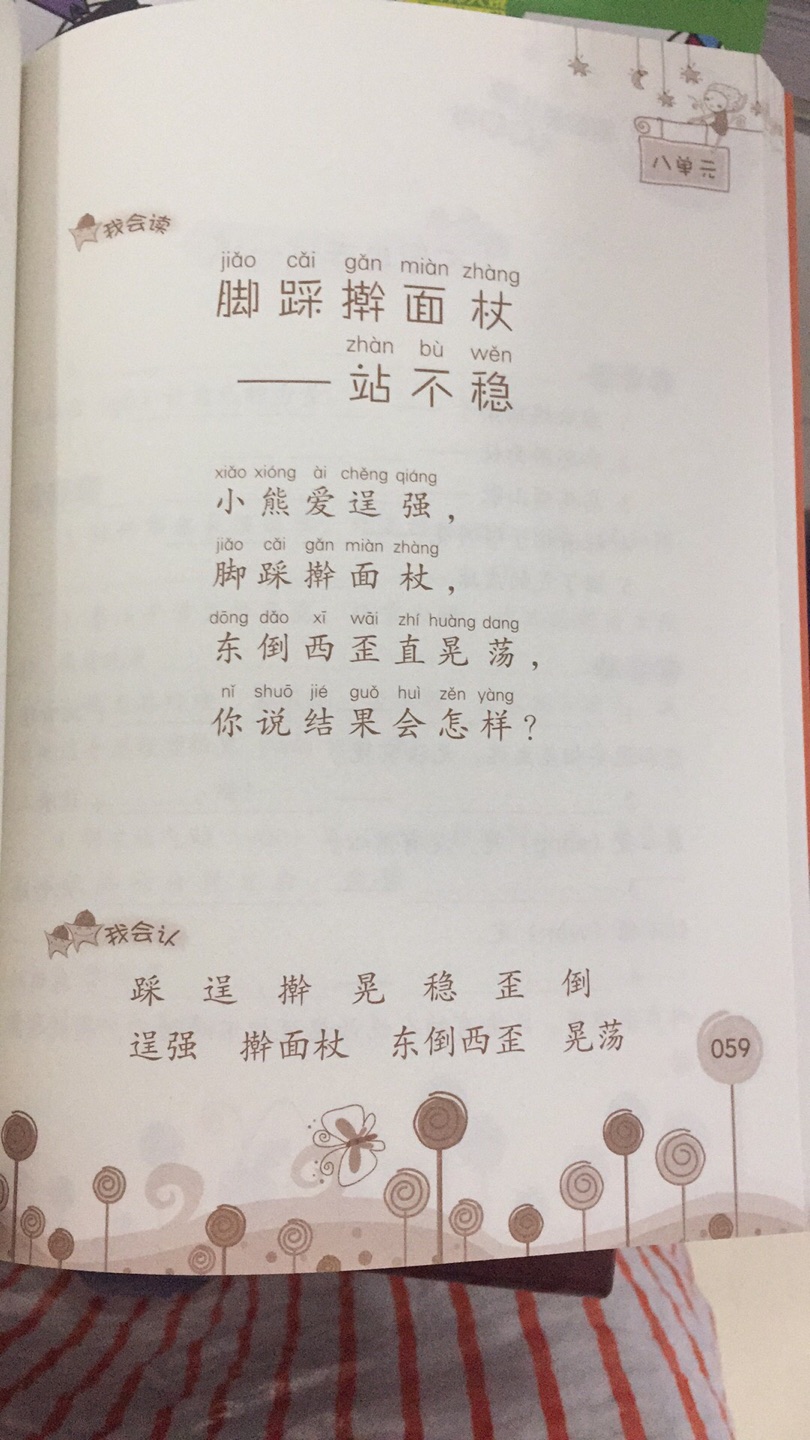 八单元
我会读
jiǎo cǎi gǎn miàn zhàng
脚踩擀面杖
zhàn bù wěn
——站不稳
xiǎo xióng ài chěng qiáng
小熊爱逞强，
jiǎo cǎi gǎn miàn zhàng
脚踩擀面杖，
dōng dǎo xī wāi zhí huàng dang
东倒西歪直晃荡，
nǐ shuō jié guǒ huì zěn yàng
你说结果会怎样？
我会认
踩 逞 擀 晃 稳 歪 倒
逞强 擀面杖 东倒西歪 晃荡
059